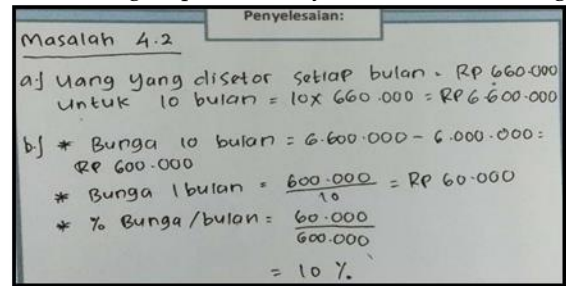 Penyelesaian:
Masalah 4.2
a.) Uang yang disetor setiap bulan = Rp 660.000
untuk 10 bulan = 10x 660.000 = RP 6.600.000
b.) * Bunga 10 bulan = 6.600.000 - 6.000.000 =
RP 600.000
* Bunga 1 bulan = 600.000 / 10 = RP 60.000
* % Bunga / bulan = 60.000 / 600.000
= 10 %